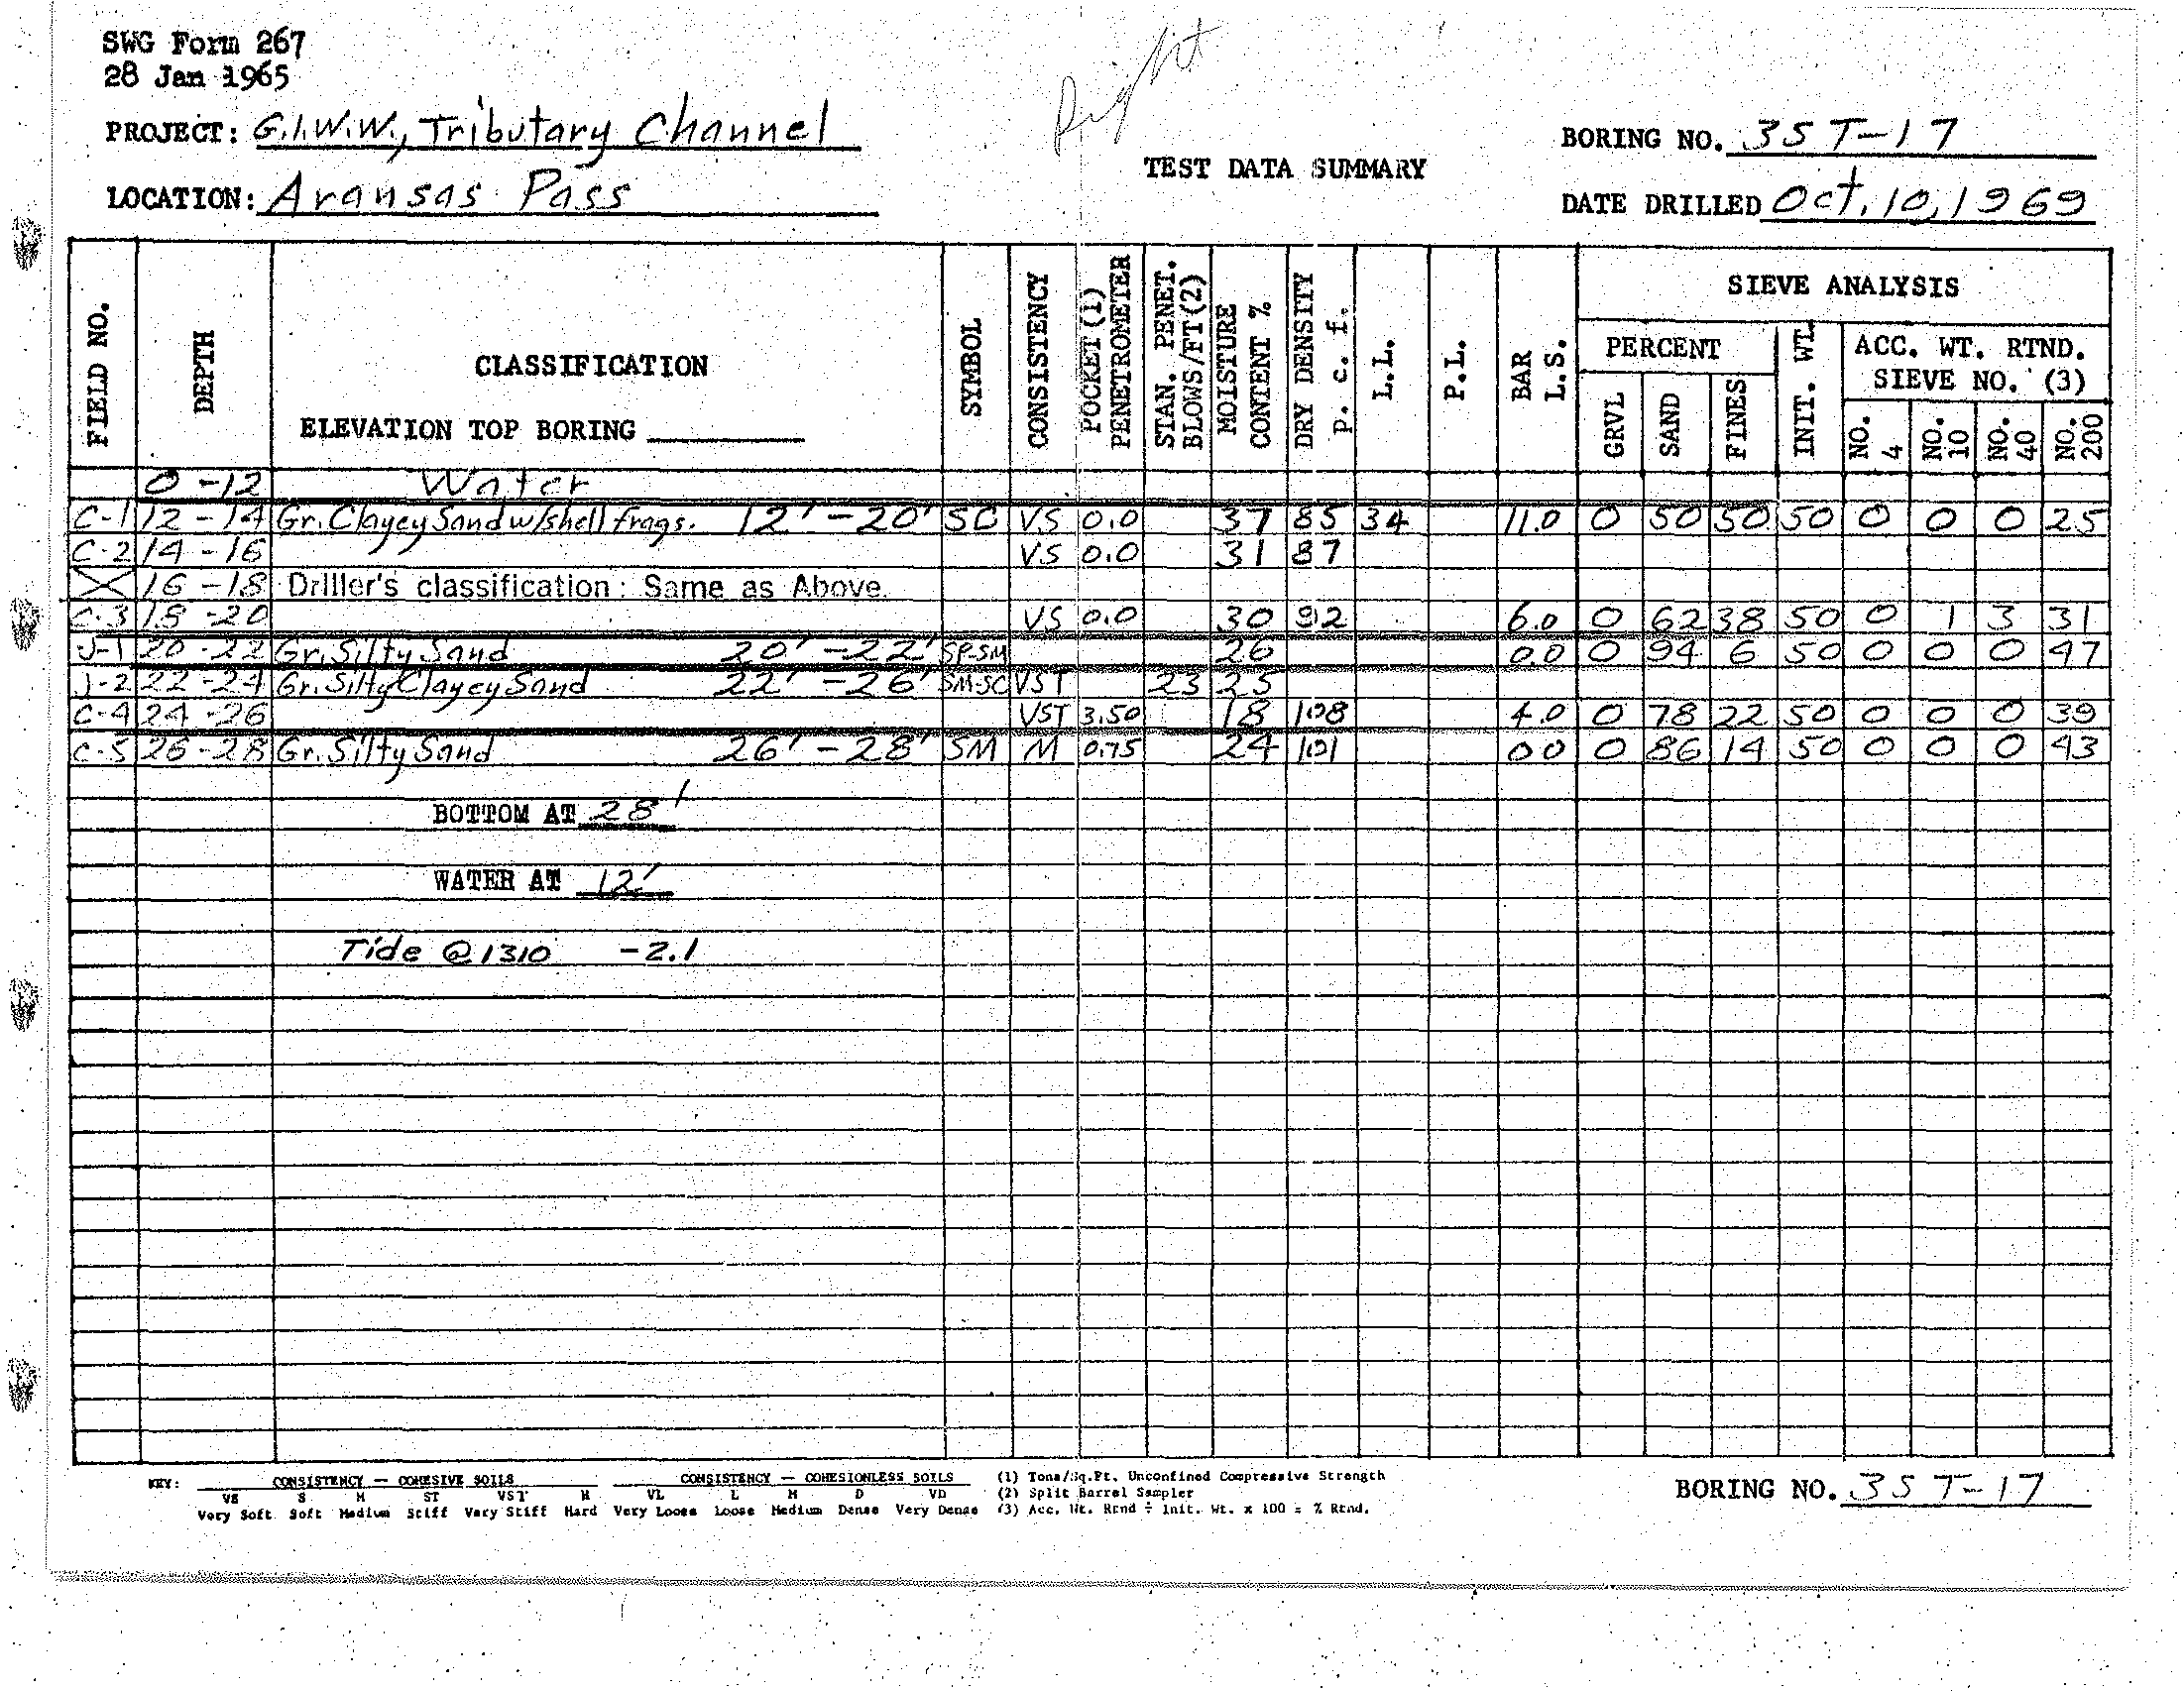 SWG Form 267
28 Jan 1965
Right
PROJECT: G.I.W.W., Tributary Channel
BORING NO. 3ST-17
TEST DATA SUMMARY
LOCATION: Aransas Pass
DATE DRILLED Oct. 10, 1969
FIELD NO.
DEPTH
CLASSIFICATION
ELEVATION TOP BORING
SYMBOL
CONSISTENCY
POCKET (1) PENETROMETER
STAN. PENET. BLOWS/FT(2)
MOISTURE CONTENT %
DRY DENSITY P. c. f.
L.L.
P.L.
BAR L.S.
SIEVE ANALYSIS
PERCENT
GRVL
SAND
FINES
INIT. WT.
ACC. WT. RTND.
SIEVE NO. (3)
NO. 4
NO. 10
NO. 40
NO. 200
0-12 Water
C-1 12-14 Gr. Clayey Sand w/shell frags. 12'-20' SC VS 0.0 37 85 34 11.0 0 50 50 50 0 0 0 25
C-2 14-16 VS 0.0 31 87
X 16-18 Driller's classification: Same as Above.
C-3 18-20 VS 0.0 30 92 6.0 0 62 38 50 0 1 3 31
J-1 20-22 Gr. Silty Sand 20'-22' SP-SM 26 0.0 0 94 6 50 0 0 0 47
J-2 22-24 Gr. Silty Clayey Sand 22'-26' SM-SC VST 23 25
C-4 24-26 VST 3.50 18 108 4.0 0 78 22 50 0 0 0 39
C-5 26-28 Gr. Silty Sand 26'-28' SM M 0.75 24 101 00 0 86 14 50 0 0 0 43
BOTTOM AT 28'
WATER AT 12'
Tide @ 1310 -2.1
KEY: CONSISTENCY — COHESIVE SOILS
VS S M ST VST H
Very Soft Soft Medium Stiff Very Stiff Hard
CONSISTENCY — COHESIONLESS SOILS
VL L M D VD
Very Loose Loose Medium Dense Very Dense
(1) Tons/Sq.Ft. Unconfined Compressive Strength
(2) Split Barrel Sampler
(3) Acc. Wt. Rtnd ÷ Init. Wt. x 100 = % Rtnd.
BORING NO. 3ST-17